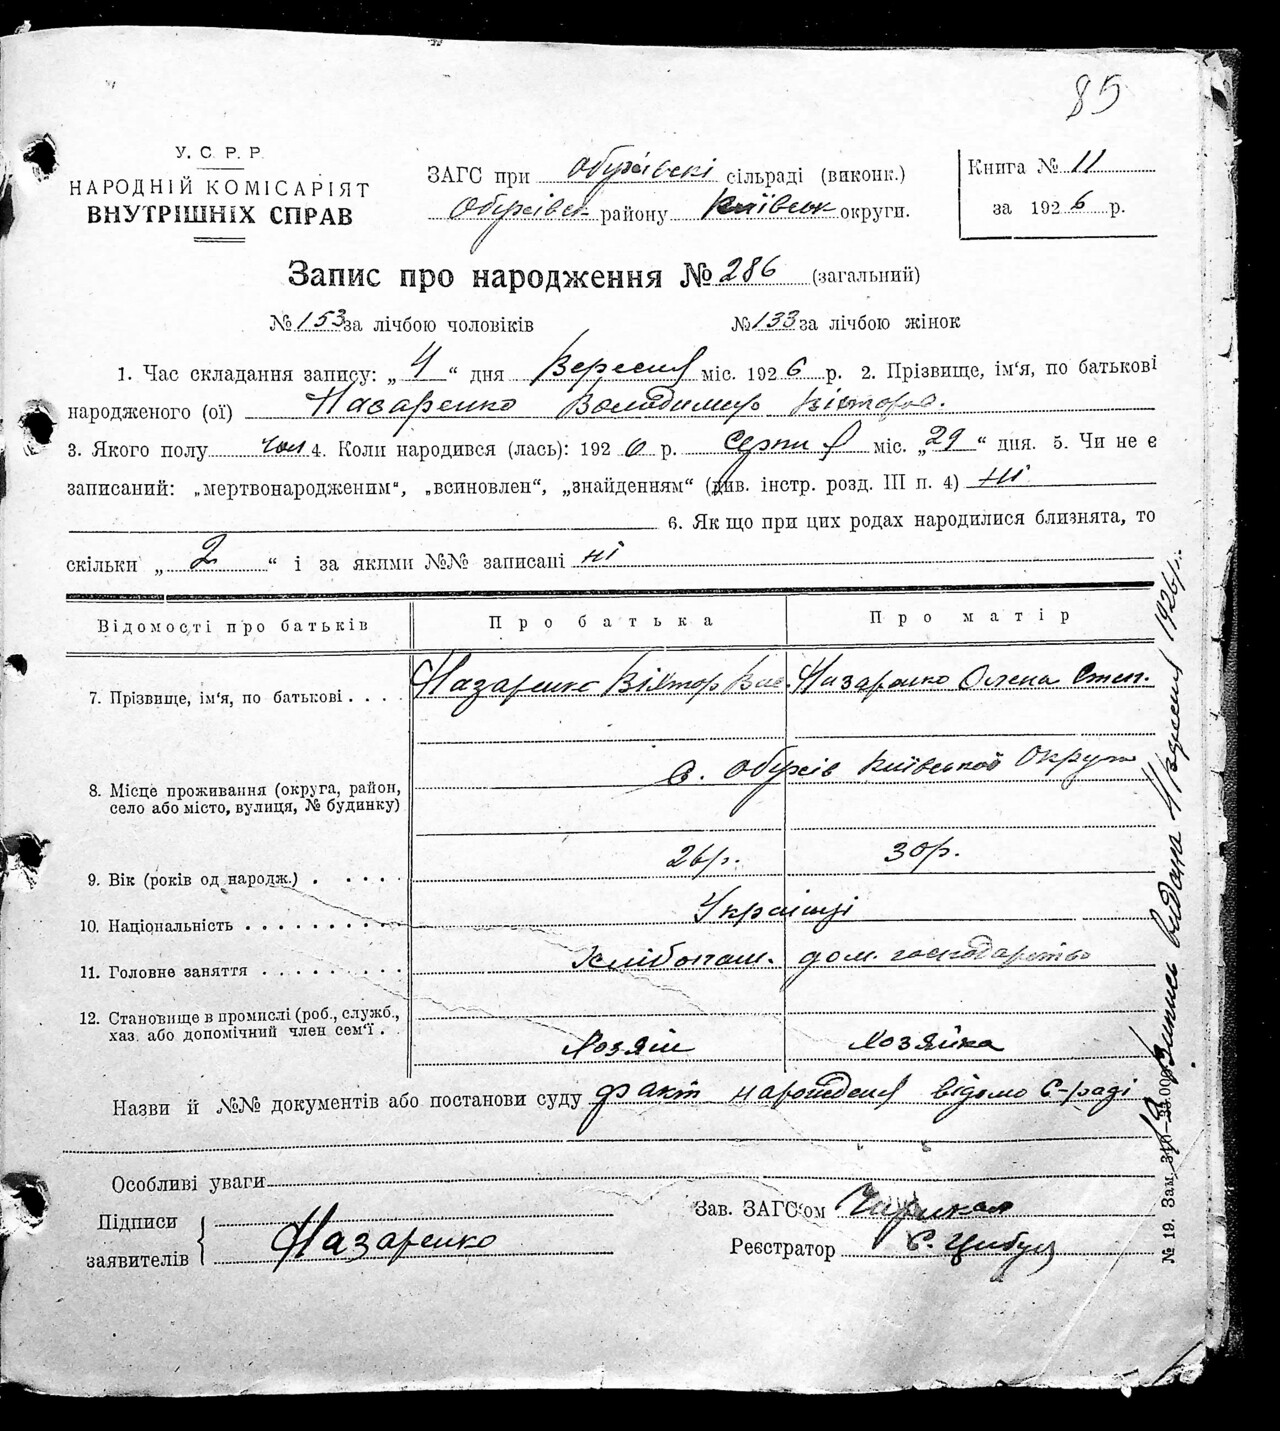 85
У. С. Р. Р.
НАРОДНІЙ КОМІСАРІЯТ
ВНУТРІШНІХ СПРАВ
ЗАГС при Обухівскі сільраді (виконк.)
Обухівськ району Київськ округи.
Книга № 11
за 1926 р.
Запис про народження № 286 (загальний)
№ 153 за лічбою чоловіків № 133 за лічбою жінок
1. Час складання запису: „ 4 “ дня Вересня міс. 1926 р. 2. Прізвище, ім‘я, по батькові
народженого (ої) Назаренко Володимир Вікторов.
3. Якого полу чол 4. Коли народився (лась): 1926 р. Серпня міс. „29“ дня. 5. Чи не є
записаний: „мертвонародженим“, „всиновлен“, „знайденням“ (див. інстр. розд. III п. 4) ні
6. Як що при цих родах народилися близнята, то
скільки „ 2 “ і за якими №№ записані ні
Відомості про батьків Про батька Про матір
7. Прізвище, ім‘я, по батькові . . . . Назаренко Віктор Вас. Назаренко Олена Степ.
8. Місце проживання (округа, район,
село або місто, вулиця, № будинку)
с. Обухів Київської Округи
9. Вік (років од народж.) . . . . . 26р. 30р.
10. Національність . . . . . . . . . Українці
11. Головне заняття . . . . . . . . Хлібопаш. дом. господарство
12. Становище в промислі (роб., служб.,
хаз. або допомічний член сем‘ї . .
Хозяїн Хозяйка
Назви й №№ документів або постанови суду факт народження відомо С-раді
Особливі уваги
Підписи
заявителів
Назаренко
Зав. ЗАГС‘ом
Реєстратор С. Цибул
Випись видана 4/Вересня 1926р.
№ 19. Зам.